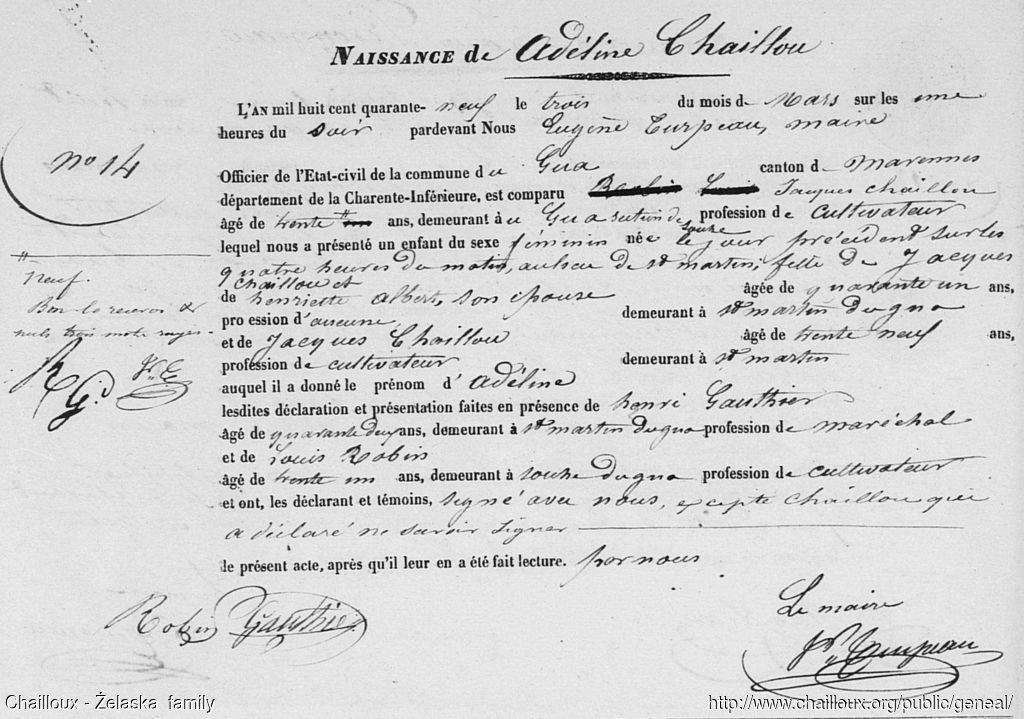 NAISSANCE de Adéline Chaillou
L'AN mil huit cent quarante- neuf le trois du mois d e Mars sur les une
heures du soir pardevant Nous Eugène Turpeau, maire
n° 14
Officier de l'Etat-civil de la commune d u Gua canton d e marennes
département de la Charente-Inférieure, est comparu Robin Louis Jacques chaillou
âgé de trente # un ans, demeurant à u Gua section de souhe profession d e cultivateur
lequel nous a présenté un enfant du sexe féminin né e le jour précédent sur les
quatre heures du matin, au lieu de st martin; fille de Jacques
chaillou et
de henriette albert, son épouse âgée de quarante un ans,
pro ession d'aucune, demeurant à st martin du gua
et de Jacques Chaillou âgé de trente neuf ans,
profession d e cultivateur demeurant à st martin
auquel il a donné le prénom d' adéline
lesdites déclaration et présentation faites en présence de henri Gauthier
âgé de quarante deux ans, demeurant à st martin du gua profession d e maréchal
et de Louis Robin
âgé de trente un ans, demeurant à souhe du gua profession d e cultivateur
et ont, les déclarant et témoins, signé avec nous, excepté chaillou qui
a déclaré ne savoir signer
le présent acte, après qu'il leur en a été fait lecture. par nous
#
neuf.
Bon le renvoi &
nuls trois mots rayés.
R
G.
Robin Gauthier
Le maire
Turpeau
Chailloux - Želaska family
http://www.chailloux.org/public/geneal/